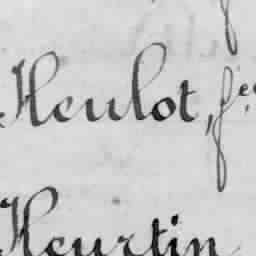 Heulot, fe.
Heurtin